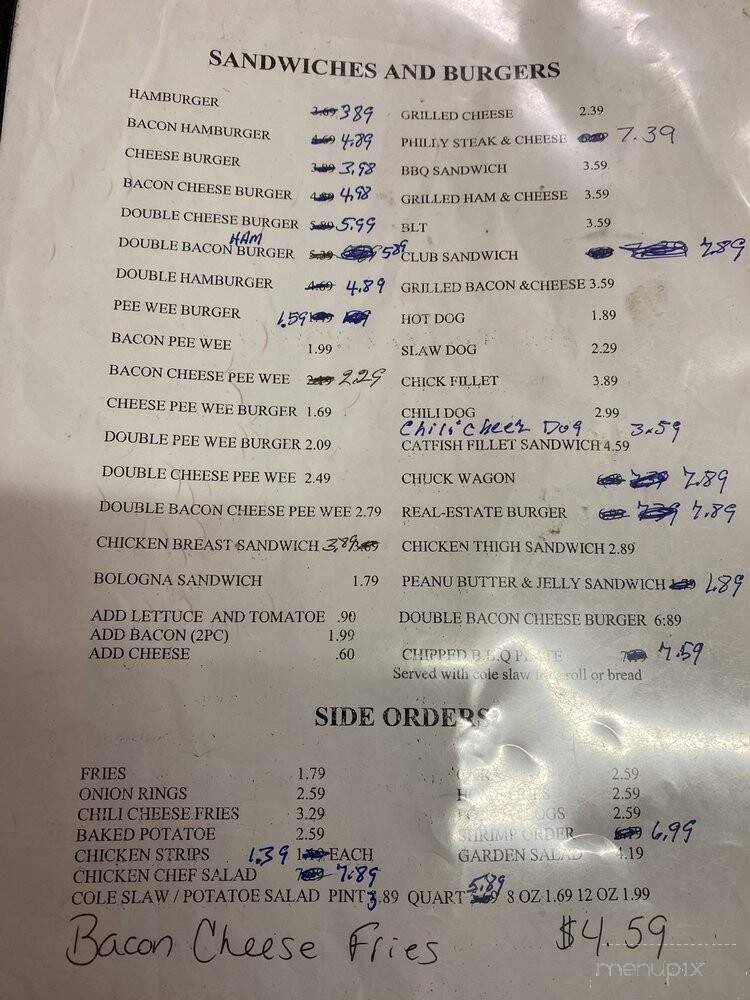 SANDWICHES AND BURGERS
HAMBURGER 3.69 3.89
BACON HAMBURGER 4.69 4.89
CHEESE BURGER 3.98
BACON CHEESE BURGER 4.98
DOUBLE CHEESE BURGER 5.89 5.99
HAM
DOUBLE BACON BURGER 5.39 5.89
DOUBLE HAMBURGER 4.69 4.89
PEE WEE BURGER 1.59
BACON PEE WEE 1.99
BACON CHEESE PEE WEE 2.29
CHEESE PEE WEE BURGER 1.69
DOUBLE PEE WEE BURGER 2.09
DOUBLE CHEESE PEE WEE 2.49
DOUBLE BACON CHEESE PEE WEE 2.79
CHICKEN BREAST SANDWICH 3.89
BOLOGNA SANDWICH 1.79
ADD LETTUCE AND TOMATOE .90
ADD BACON (2PC) 1.99
ADD CHEESE .60
GRILLED CHEESE 2.39
PHILLY STEAK & CHEESE 7.39
BBQ SANDWICH 3.59
GRILLED HAM & CHEESE 3.59
BLT 3.59
CLUB SANDWICH 7.89
GRILLED BACON &CHEESE 3.59
HOT DOG 1.89
SLAW DOG 2.29
CHICK FILLET 3.89
CHILI DOG 2.99
Chili Cheez Dog 3.59
CATFISH FILLET SANDWICH 4.59
CHUCK WAGON 7.39 7.89
REAL-ESTATE BURGER 7.39 7.89
CHICKEN THIGH SANDWICH 2.89
PEANU BUTTER & JELLY SANDWICH 1.89
DOUBLE BACON CHEESE BURGER 6:89
CHIPPED B.B.Q PLATE 7.59
Served with cole slaw roll or bread
SIDE ORDERS
FRIES 1.79
ONION RINGS 2.59
CHILI CHEESE FRIES 3.29
BAKED POTATOE 2.59
CHICKEN STRIPS 1.39 EACH
CHICKEN CHEF SALAD 7.89
2.59
2.59
2.59
SHRIMP ORDER 6.99
GARDEN SALAD 4.19
COLE SLAW / POTATOE SALAD PINT 3.89 QUART 5.89 8 OZ 1.69 12 OZ 1.99
Bacon Cheese Fries $4.59
menupix